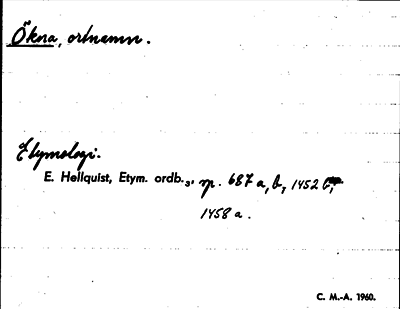 Ökna, ortnamn.
Etymologi.
E. Hellquist, Etym. ordb.₃, sp. 687 a, b, 1452 b,
1458 a.
C. M.-A. 1960.